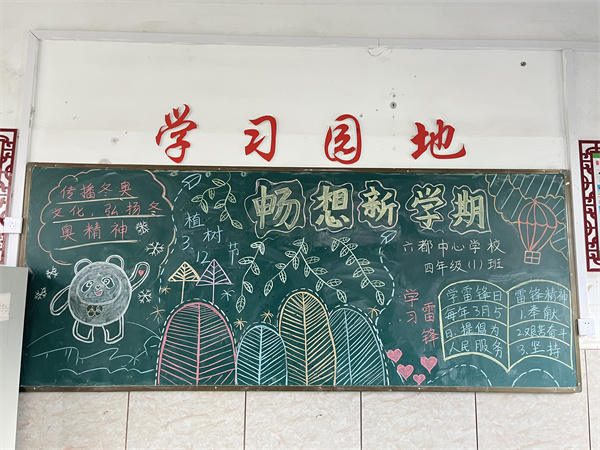 学习园地
传播冬奥
文化，弘扬冬
奥精神
植树节
3.12
畅想新学期
六都中心学校
四年级(1)班
学习雷锋
学雷锋日
每年3月5
日.提倡为
人民服务
雷锋精神
1.奉献
2.艰苦奋斗
3.坚持